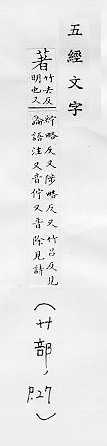 五經文字
著竹去反斫略反又陟略反又竹呂反見
明也又論語注又音佇又音除見詩
(艹部, P.27)